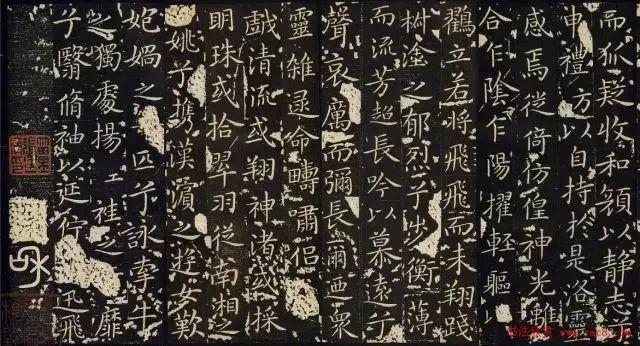 而狐疑收和顔以静志
申禮方以自持於是洛靈
感焉徙倚彷徨神光離
合乍陰乍陽擢輕軀以
鶴立若將飛飛而未翔踐
椒塗之郁烈兮步衡薄
而流芳超長吟以慕遠兮
聲哀厲而彌長爾迺衆
靈雜遝命疇嘯侣
戲清流或翔神渚或採
明珠或拾翠羽從南湘之
姚兮攜漢濱之遊女歎
媧之匹兮詠牽牛
之獨處揚袿之靡
兮翳脩袖以延佇迅飛